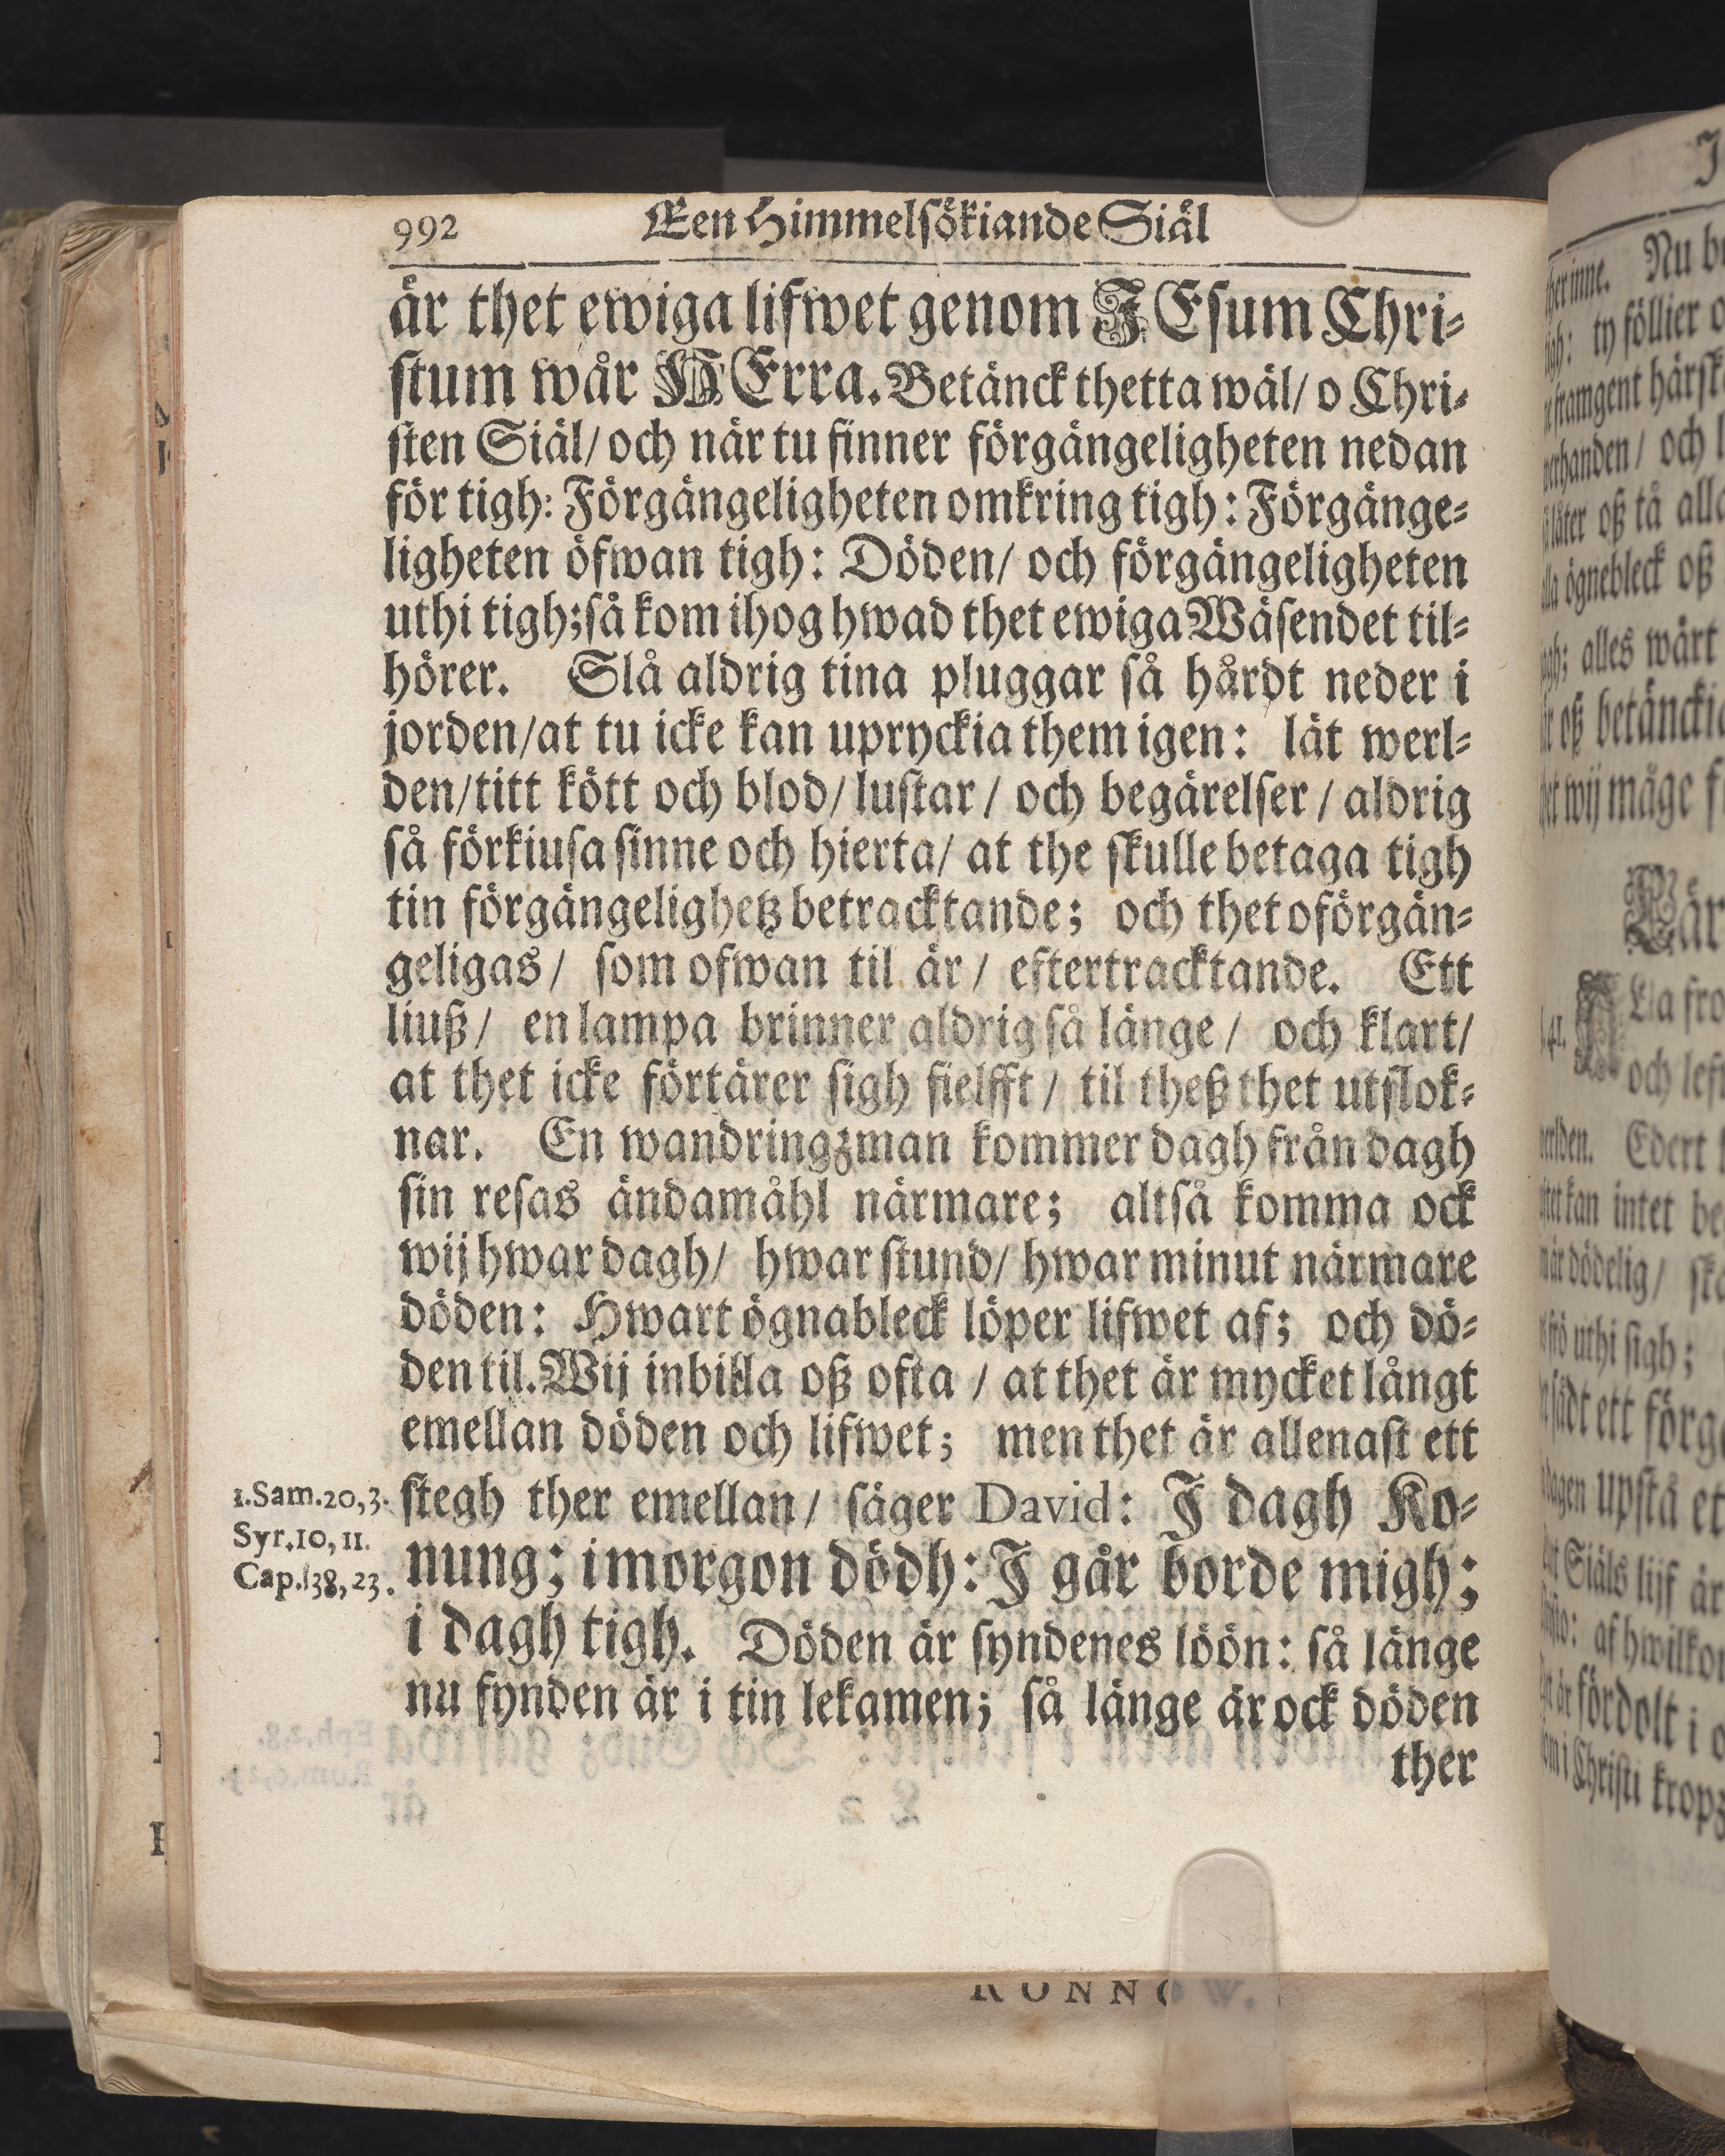 992 Een Himmelsökiande Siäl
är thet ewiga lifwet genom JEsum Chri-
stum wår HErra. Betänck thetta wäl/ o Chri-
sten Siäl/ och när tu finner förgängeligheten nedan
för tigh: Förgängeligheten omkring tigh: Förgänge-
ligheten öfwan tigh: Döden/ och förgängeligheten
uthi tigh; så kom ihog hwad thet ewiga Wäsendet til-
hörer. Slå aldrig tina pluggar så hårdt neder i
jorden/ at tu icke kan upryckia them igen: lät werl-
den/ titt kött och blod/ lustar / och begärelser / aldrig
så förkiusa sinne och hierta/ at the skulle betaga tigh
tin förgängelighetz betracktande; och thet oförgän-
geligas/ som ofwan til är/ eftertracktande. Ett
liuß/ en lampa brinner aldrig så länge/ och klart/
at thet icke förtärer sigh sielfft/ til theß thet utslok-
nar. En wandringzman kommer dagh från dagh
sin resas ändamåhl närmare; altså komma ock
wij hwar dagh/ hwar stund/ hwar minut närmare
döden: Hwart ögnableck löper lifwet af; och dö-
den til. Wij inbilla oß ofta / at thet är mycket långt
emellan döden och lifwet; men thet är allenast ett
1.Sam.20,3. stegh ther emellan/ säger David: J dagh Ko-
Syr.10,11.
Cap.38,23. nung; i morgon dödh: J går borde migh;
i dagh tigh. Döden är syndenes löön: så länge
nu synden är i tin lekamen; så länge är ock döden
ther
her inne. Nu
ty föllier
framgent
och
oß tå
ögnebleck oß
alles wårt
oß
wij måge
och
Edert
kan intet
dödelig/
uthi sigh;
ett
upstå
Siäls lijf är
af
är fördolt i
i Christi